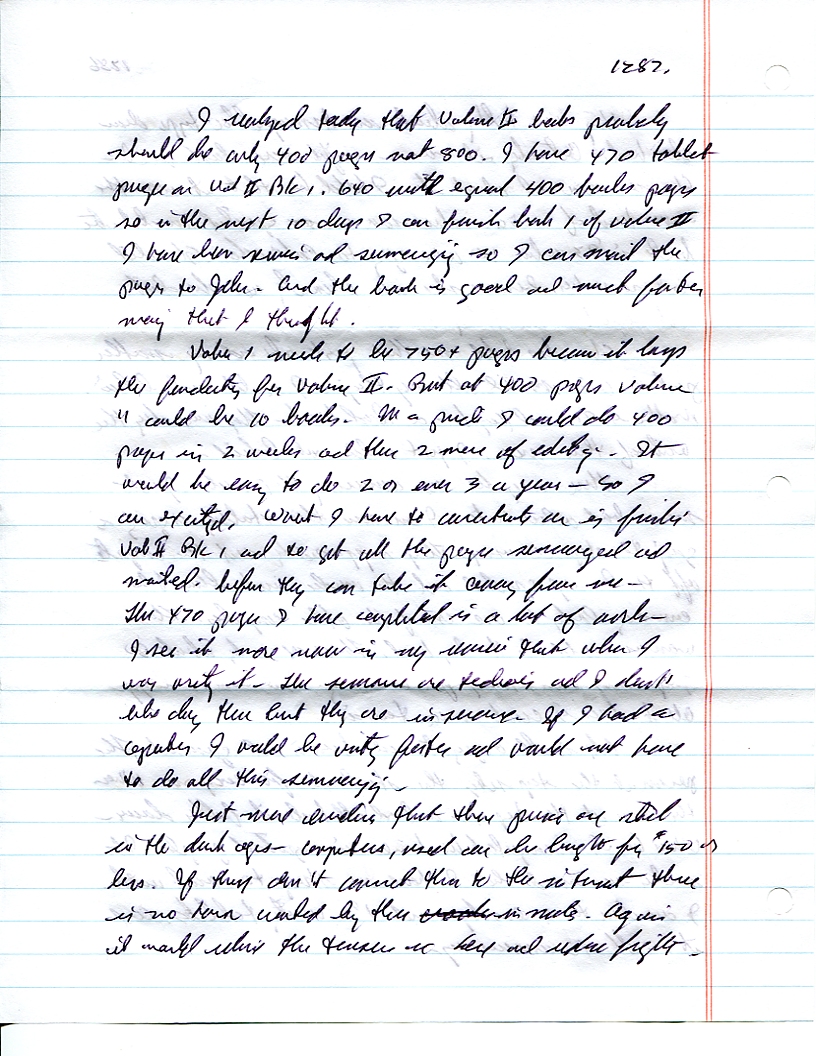 1287.
I realized today that Volume II books probably
should be only 400 pages not 800. I have 470 tablet
pages on Vol II Bk 1. 640 will equal 400 books pages
so in the next 10 days I can finish book 1 of volume II
I have been and summarizing so I can mail the
pages to John. And the book is good and much further
that I thought.
Volume 1 needs to be 750+ pages because it lays
the for Volume II. But at 400 pages volume
II could be 10 books. In a pinch I could do 400
pages in 2 weeks and then 2 more of editing. It
would be easy to do 2 or even 3 a year — so I
am excited. What I have to concentrate on is finishing
Vol II Bk 1 and to get all the pages summarized and
mailed. before they can take it away from me —
The 470 pages I have completed is a lot of work —
I see it more now in my that when I
was writing it — The summaries are tedious and I don't
like doing them but they are insurance. If I had a
computer I would be writing faster and would not have
to do all this summarizing —
Just more evidence that these prisons are still
in the dark ages — computers, used can be bought for $150 or
less. If they don't connect them to the internet there
is no harm created by the inmate. Again
it would relieve the tension in here and reduce fights —